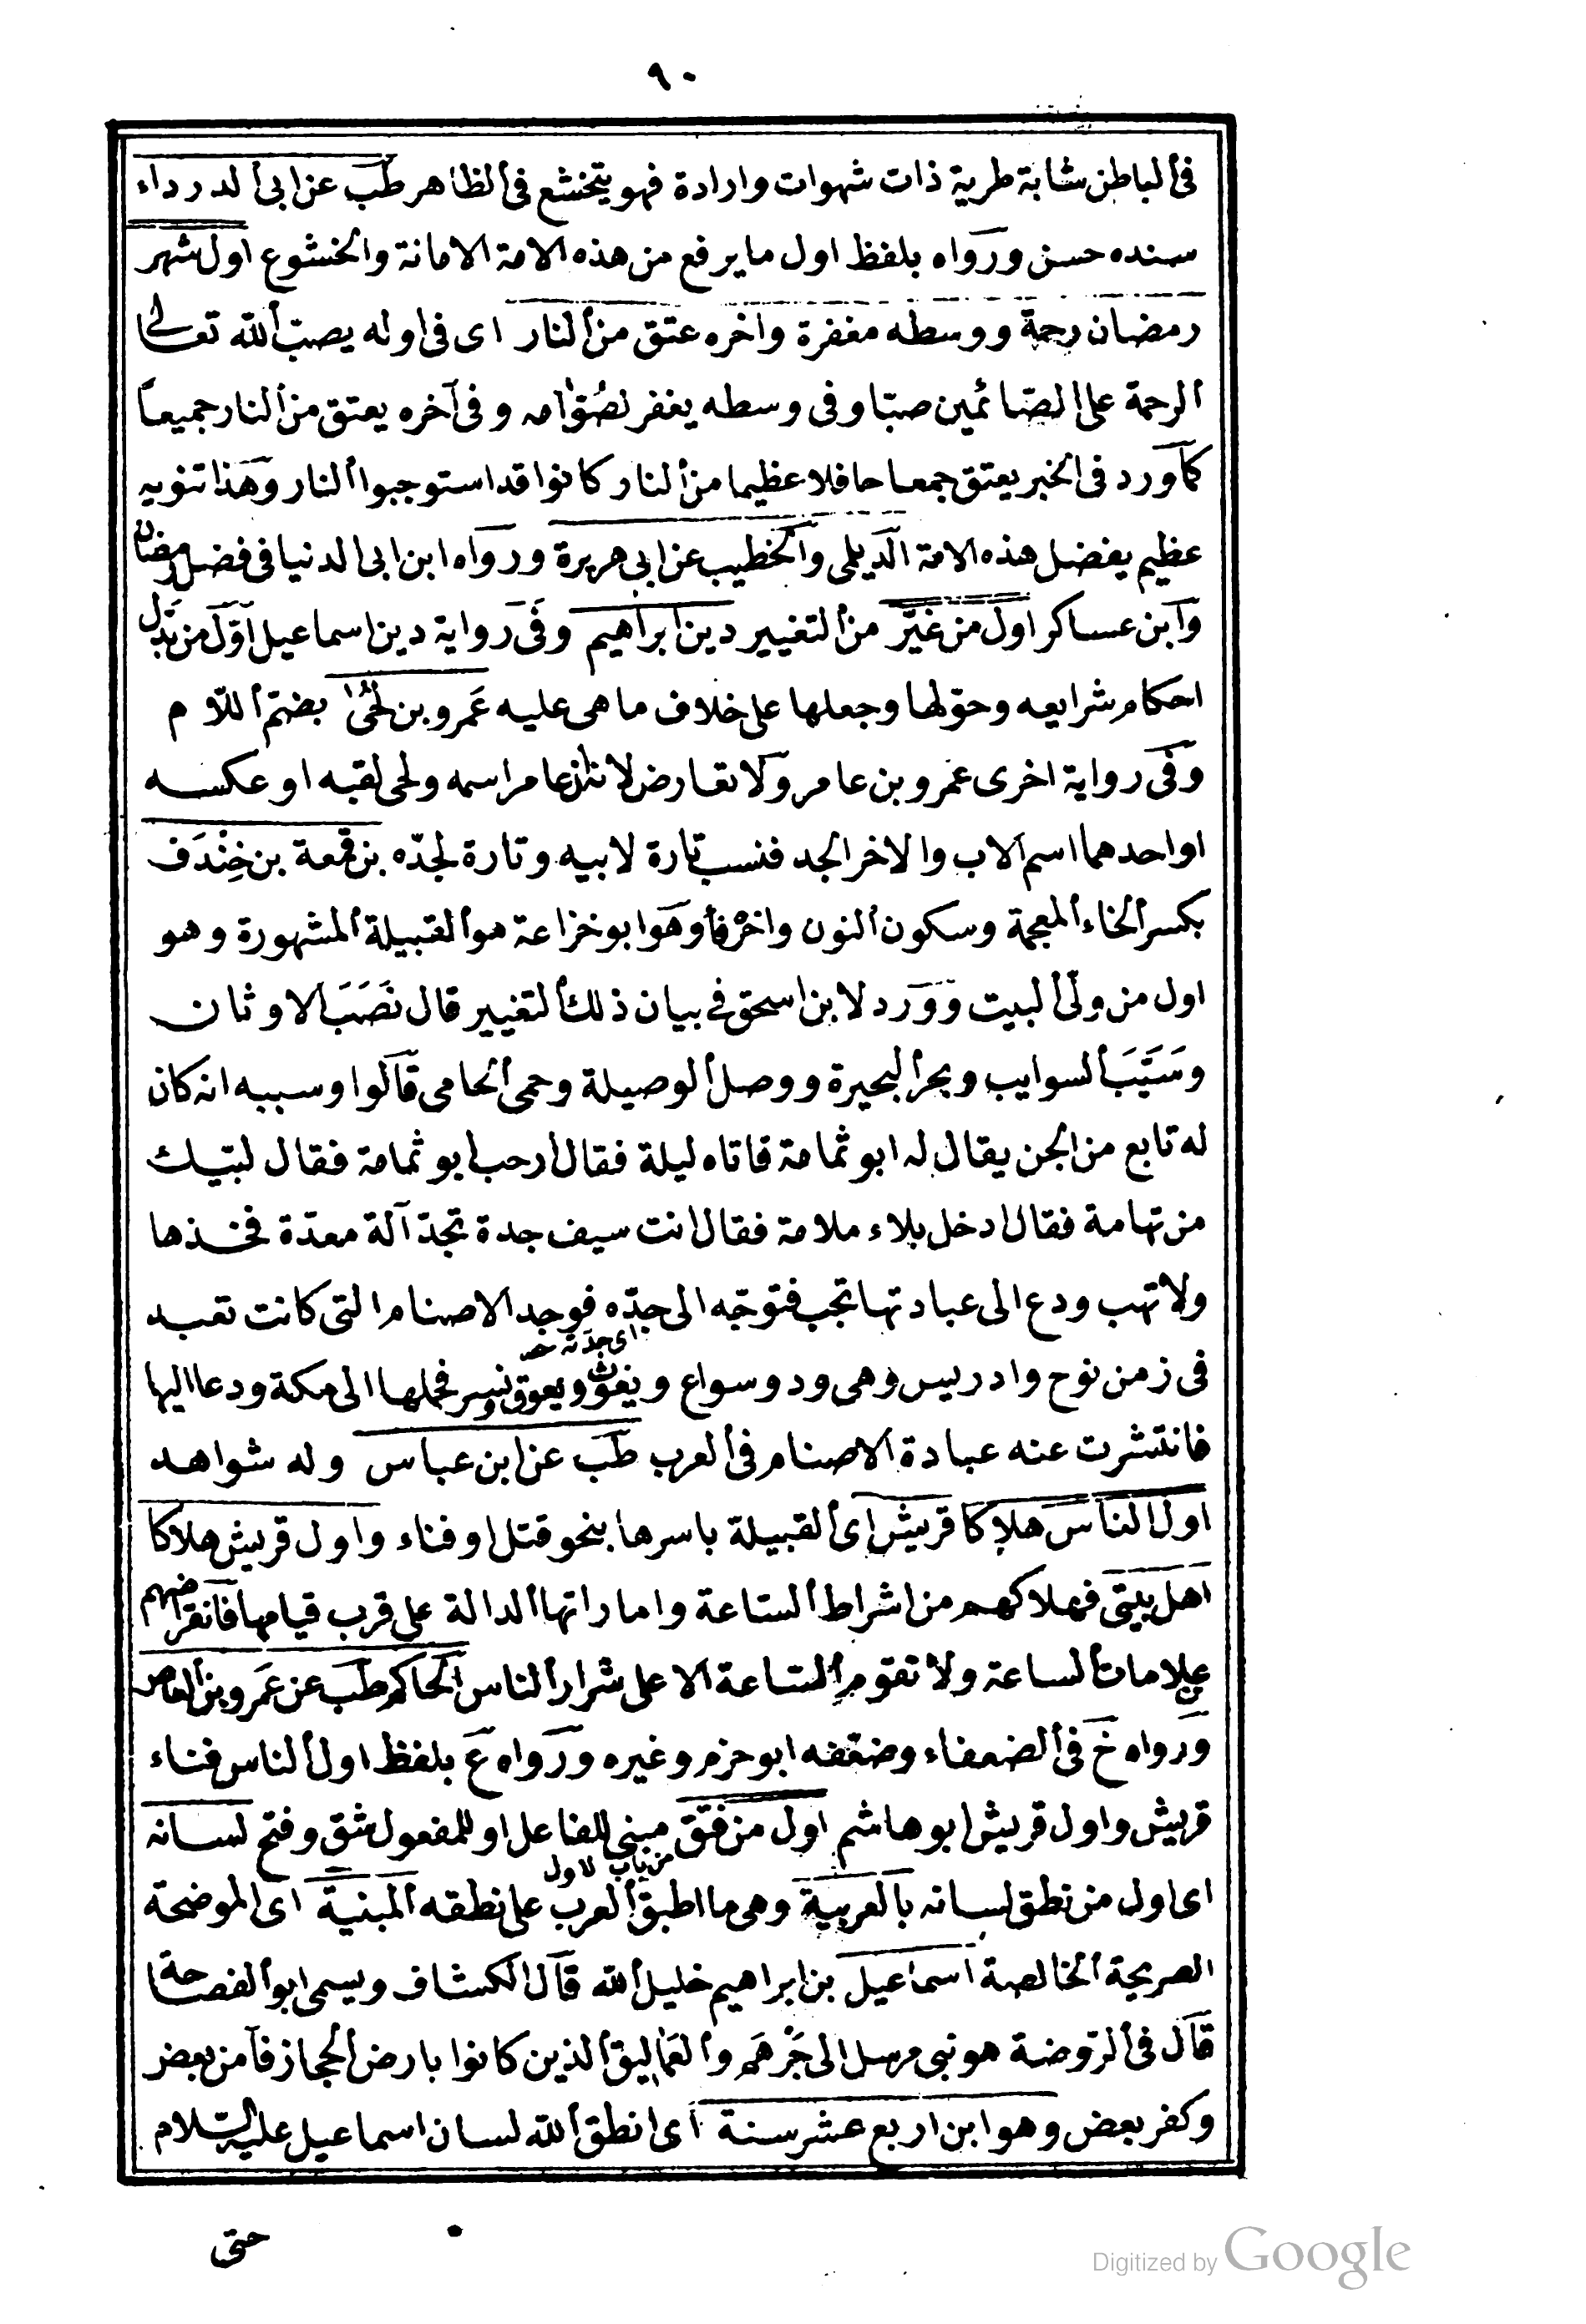 ٩٠
فى الباطن شابة طرية ذات شهوات وارادة فهو يتخشع فى الظاهر طب عن ابى الدرداء
سنده حسن ورواه بلفظ اول ما يرفع من هذه الامة الامانة والخشوع اول شهر
رمضان رحمة ووسطه مغفرة واخره عتق من النار اى فى اوله يصب الله تعالى
الرحمة على الصائمين صبا وفى وسطه يغفر لصوامه وفى آخره يعتق من النار جميعا
كما ورد فى الخبر يعتق جمعا حافلا عظيما من النار كانوا قد استوجبوا النار وهذا تنويه
عظيم بفضل هذه الامة الديلمى والخطيب عن ابى هريرة ورواه ابن ابى الدنيا فى فضل رمضان
وابن عساكر اول من غيّر من التغيير دين ابراهيم وفى رواية دين اسماعيل اوّل من بدّل
احكام شرايعه وحوّلها وجعلها على خلاف ما هى عليه عَمرو بن لُحَىّ بضمّ اللّام
وفى رواية اخرى عمرو بن عامر ولا تعارض لانه عامر اسمه ولحى لقبه او عكسه
او احدهما اسم الاب والاخر الجد فنسب تارة لابيه وتارة لجدّه بن قمعة بن خِنْدَف
بكسر الخاء المعجمة وسكون النون واخره فا وهو ابو خزاعة هو القبيلة المشهورة وهو
اول من ولّى البيت وورد لابن اسحق فى بيان ذلك التغيير قال نَصَبَ الاوثان
وسَيَّبَ السوايب وبحر البحيرة ووصل الوصيلة وحمى الحامى قالوا وسببه انه كان
له تابع من الجن يقال له ابو ثمامة فاتاه ليلة فقال ارحب ابو ثمامة فقال لبّيك
من تهامة فقال ادخل بلاء ملامة فقال انت سيف جدة تجد آلة معدّة فخذها
ولا تهب ودع الى عبادتها تجب فتوجّه الى جدّه فوجد الاصنام التى كانت تعبد
اى جدّته
فى زمن نوح وادريس وهى ود وسواع ويغوث ويعوق ونسر فحملها الى مكة ودعا اليها
فانتشرت عنه عبادة الاصنام فى العرب طب عن ابن عباس وله شواهد
اول الناس هلاكا قريش اى القبيلة باسرها بنحو قتل او فناء واول قريش هلاكا
اهل بيتى فهلاكهم من اشراط الساعة واماراتها الدالة على قرب قيامها فانقراضهم
من علامات الساعة ولا تقوم الساعة الا على شرار الناس الحاكم طب عن عمرو بن العاص
ورواه خ فى الضعفاء وضعفه ابو حزم وغيره ورواه ع بلفظ اول الناس فناء
قريش واول قريش ابو هاشم اول من فتق مبنى للفاعل او للمفعول شق وفتح لسانه
من باب الاول
اى اول من نطق لسانه بالعربية وهى ما اطبق العرب على نطقه المبنية اى الموضحة
الصريحة الخالصة اسماعيل بن ابراهيم خليل الله قال الكشاف ويسمى ابو الفصاحة
قال فى الرّوضة هو نبى مرسل الى جُرهَم والعماليق الذين كانوا بارض الحجاز فآمن بعض
وكفر بعض وهو ابن اربع عشر سنة اى انطق الله لسان اسماعيل عليه السلام
حتى
Digitized by Google